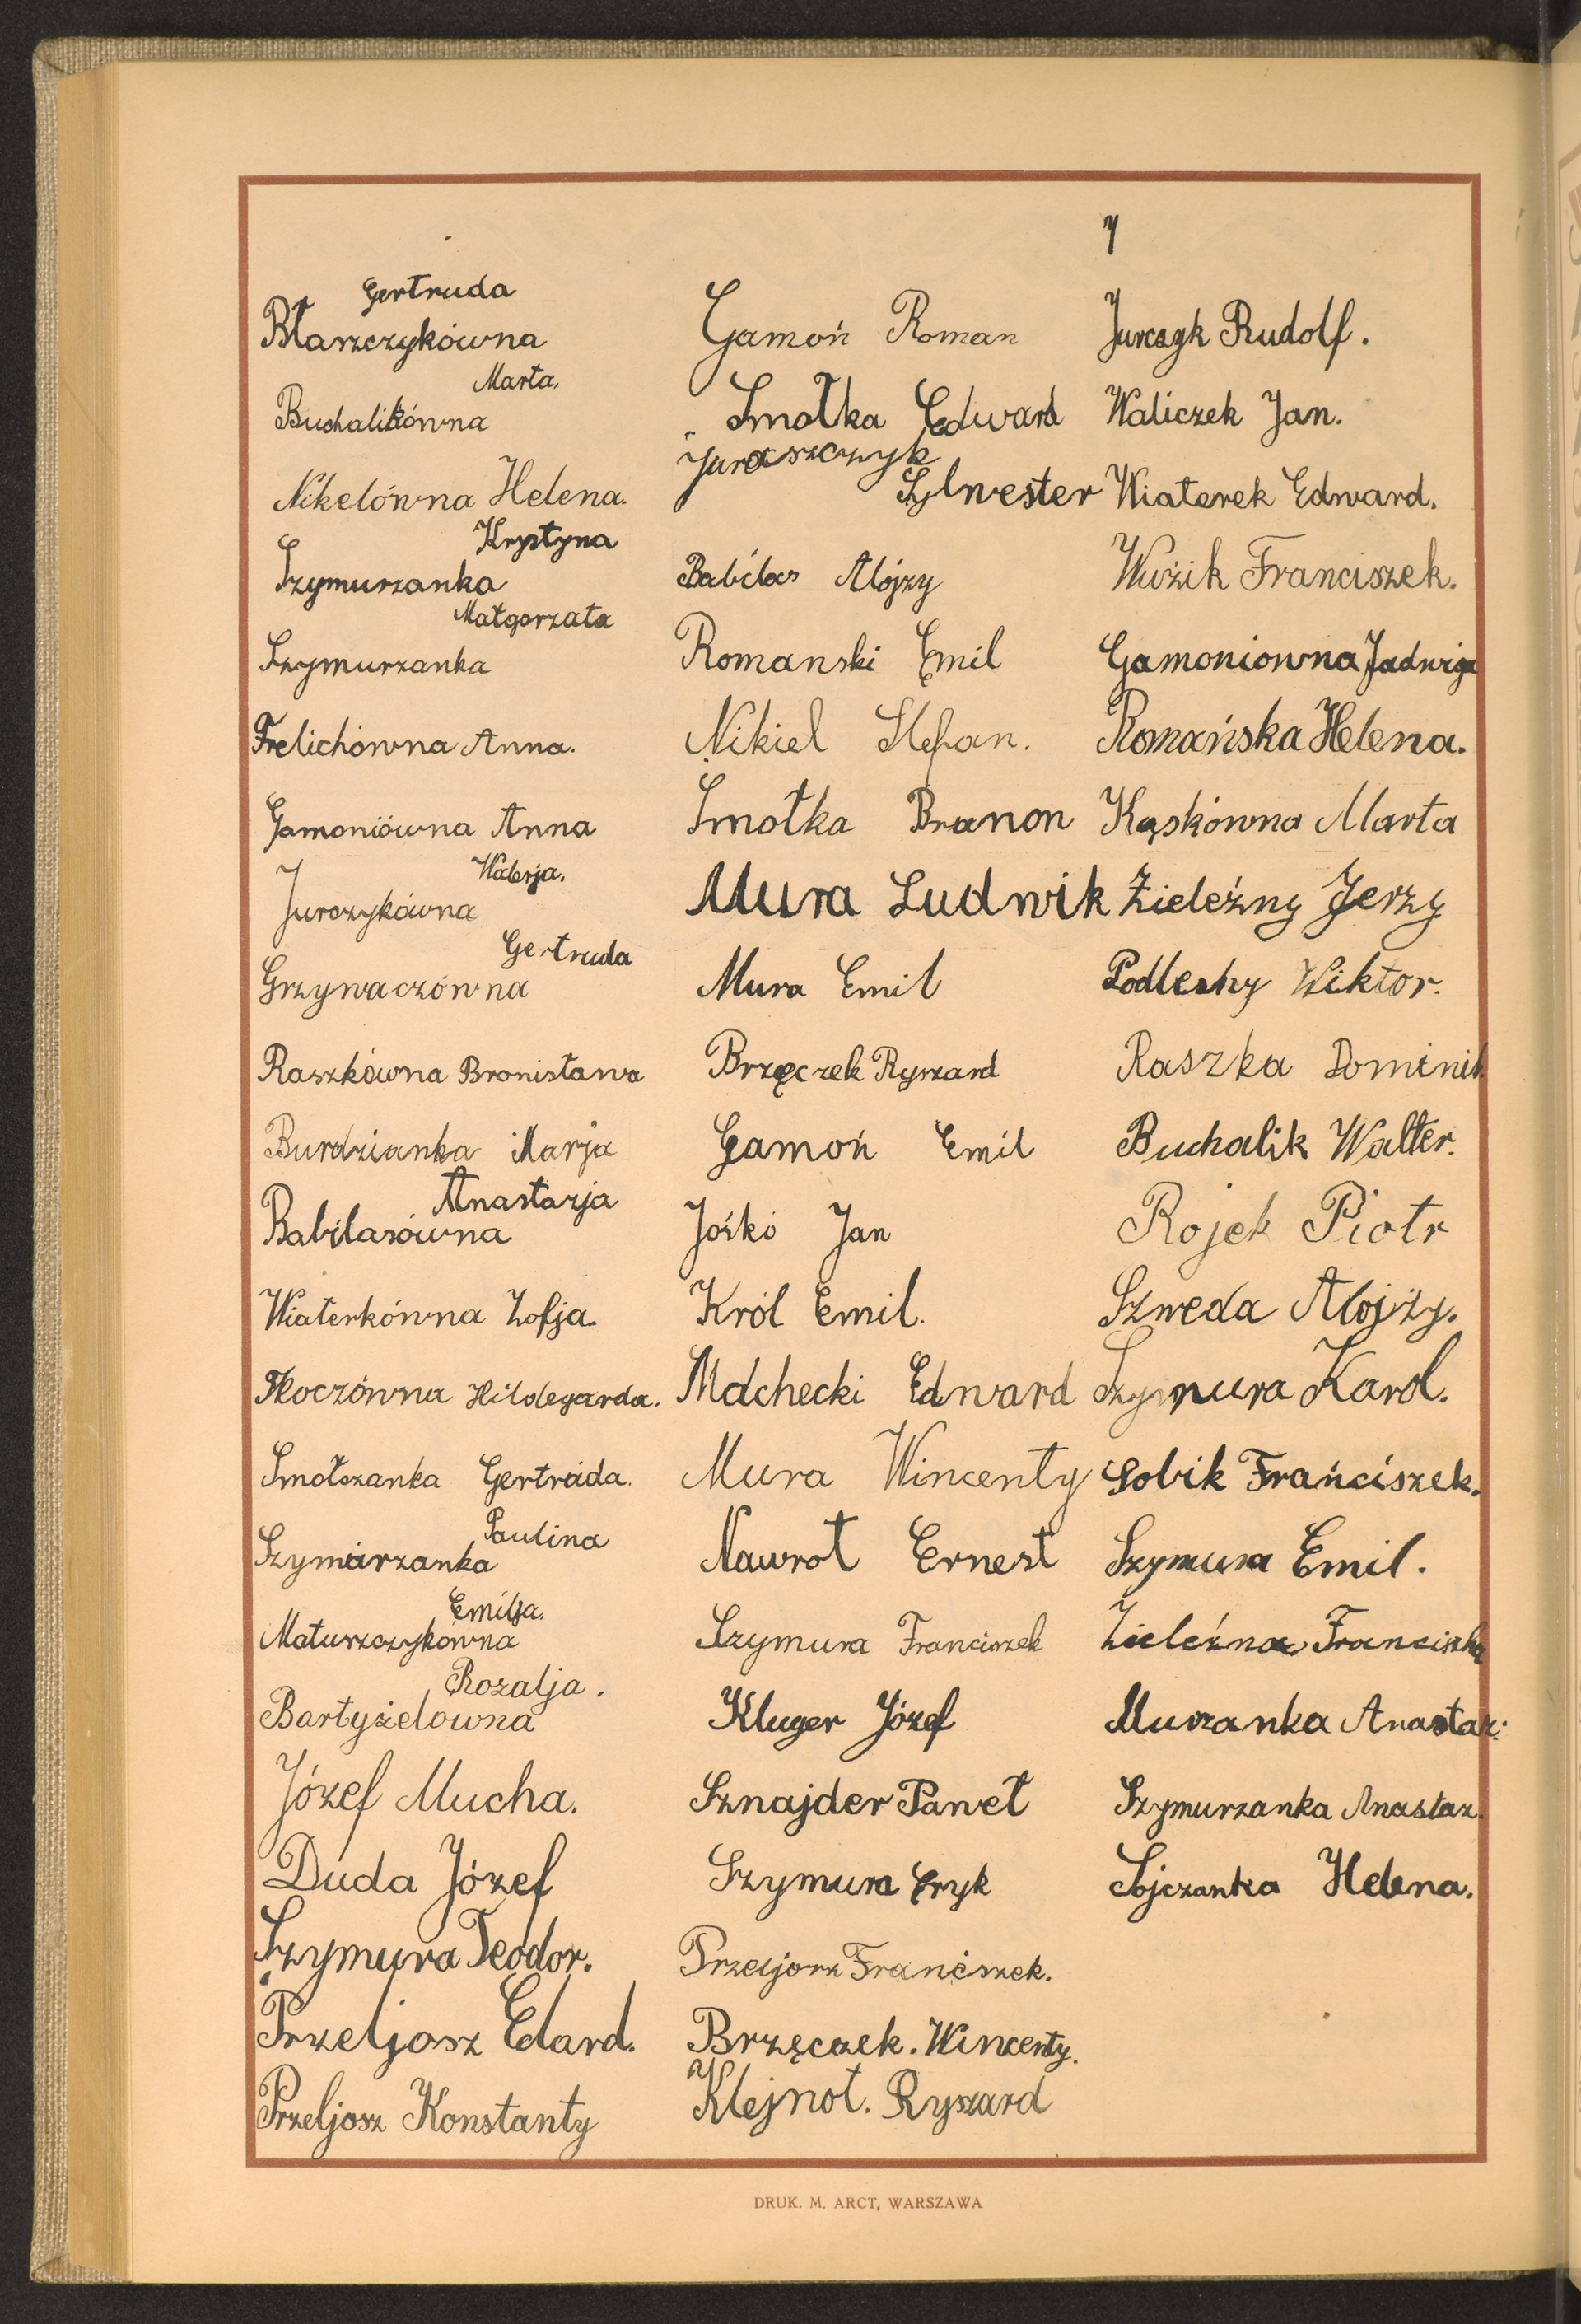 Gertruda
Błaszczykówna
Marta.
Buchalikówna
Nikelówna Helena.
Krystyna
Szymurzanka
Małgorzata
Szymurzanka
Frelichówna Anna.
Gamoniówna Anna
Walerja.
Jurczykówna
Gertruda
Grzywaczówna
Raszkówna Bronisława
Burdzianka Marja
Anastazja
Babilasówna
Wiaterkówna Zofja.
Tkoczówna Hildegarda.
Smołszanka Gertruda.
Paulina
Szymurzanka
Emilja.
Maturzczykówna
Rozalja.
Bartyżelowna
Józef Mucha.
Duda Józef
Szymura Teodor.
Przeljosz Edard.
Przeljosz Konstanty
Gamoń Roman
Smołka Edward
Juraszczyk
Sylwester
Babilas Alojzy
Romanski Emil
Nikiel Stefan.
Smołka Brunon
Mura Ludwik
Mura Emil
Brzęczek Ryszard
Gamoń Emil
Jośko Jan
Król Emil.
Machecki Edward
Mura Wincenty
Nawrot Ernest
Szymura Franciszek
Kluger Józef
Sznajder Paweł
Szymura Eryk
Franciszek.
Brzęczek. Wincenty.
Klejnot. Ryszard
Jurczyk Rudolf.
Waliczek Jan.
Wiaterek Edward.
Wuzik Franciszek.
Gamoniowna Jadwiga
Romańska Helena.
Kąskówna Marta
Zieleźny Jerzy
Podleshy Wiktor.
Raszka Dominik
Buchalik Walter.
Rojek Piotr
Szweda Alojzy.
Szymura Karol.
Sobik Franciszek.
Szymura Emil.
Zieleźna Franciszka
Murzanka Anastaz.
Szymurzanka Anastaz.
Sojczanka Helena.
DRUK. M. ARCT, WARSZAWA